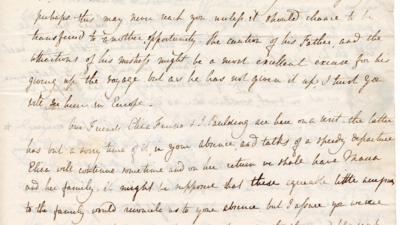 perhaps this may never reach you unless it should chance to be
transferred to another opportunity. The caution of his Father, and the
situation of his might be a most excellent excuse for his
giving up the voyage but as he has not given it up, I trust you
will him in Europe.
Our Friends Eliza & J. Paulding are here on a visit the latter
has but a sorry time of it, in your absence, and talks of a speedy departure
Eliza will continue sometime and on her return we shall have Maria
and her family; it might be supposed that these agreeable little
to the family would reconcile us to your absence but I assure you we